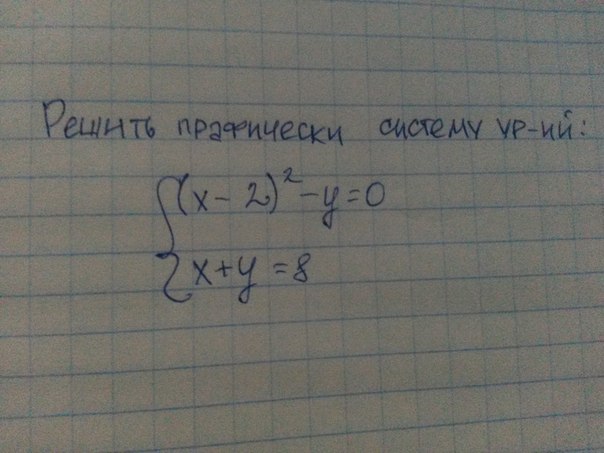 Решить графически систему ур-ий:
(x-2)²-y=0
x+y=8